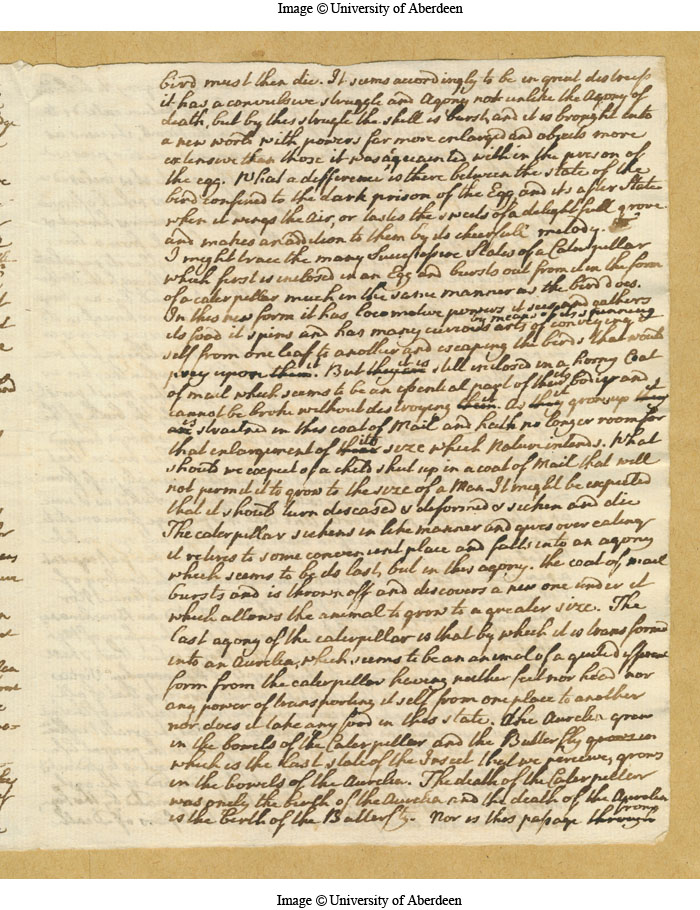 Image © University of Aberdeen
bird must then die. It seems accordingly to be in great distress
it has a convulsive struggle and Agony not unlike the Agony of
death, but by this strugle the shell is burst, and it is brought into
a new world with powers far more enlarged and objects more
extensive than those it was acquainted with in the prison of
the egg. What a difference is there between the state of the
bird confined to the dark prison of the Egg and its after State
when it wings the Air, or tastes the sweets of a delightfull grove
and makes an addition to them by its cheerfull melody.
I might trace the many Successive States of a Caterpillar
which first is inclosed in an Egg and bursts out from it in the form
of a caterpillar much in the same manner as the bird does.
In this new form it has locomotive powers it sees and gathers
by means of its spinning
its food it spins and has many curious arts of conveying it
self from one leaf to another and escaping the birds that would
prey upon them it. But they are it is still inclosed in a horny Coat
of mail which seems to be an essential part of their its body and
cannot be broke without destroying them it. As they it grows up they it
are is straitned in this coat of Mail and hath no longer room for
that enlargement of their its size which Nature intends. What
should we expect of a child shut up in a coat of Mail that will
not permit it to grow to the size of a Man. It might be expected
that it should turn diseased & deformed & sicken and die
The caterpillar sickens in like manner and gives over eating
it retires to some convenient place and falls into an agony
which seems to be its last, but in this agony. the coat of mail
bursts and is thrown off and discovers a new one under it
which allows the animal to grow to a greater size. The
last agony of the caterpillar is that by which it is transformed
into an Aurelia, which seems to be an animal of a quite different
form from the caterpillar having neither feet nor head nor
any power of transporting it self from one place to another
nor does it take any food in this state. The Aurelia grew
in the bowels of the Caterpillar and the Butterfly grows in
which is the last state of the Insect that we perceive, grows
in the bowels of the Aurelia. The death of the Caterpillar
was onely the birth of the Aurelia and the death of the Aurelia
is the birth of the Butterfly. Nor is this passage through from
Image © University of Aberdeen